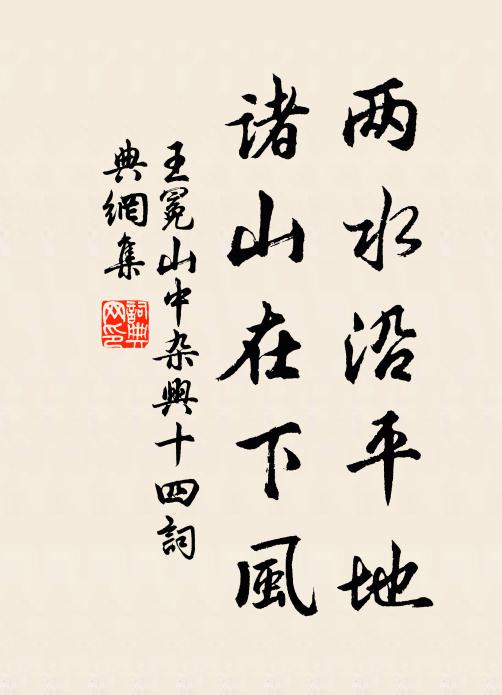 两水沿平地
诸山在下風
王冕山中杂興十四詞
典網集
詞典
网印